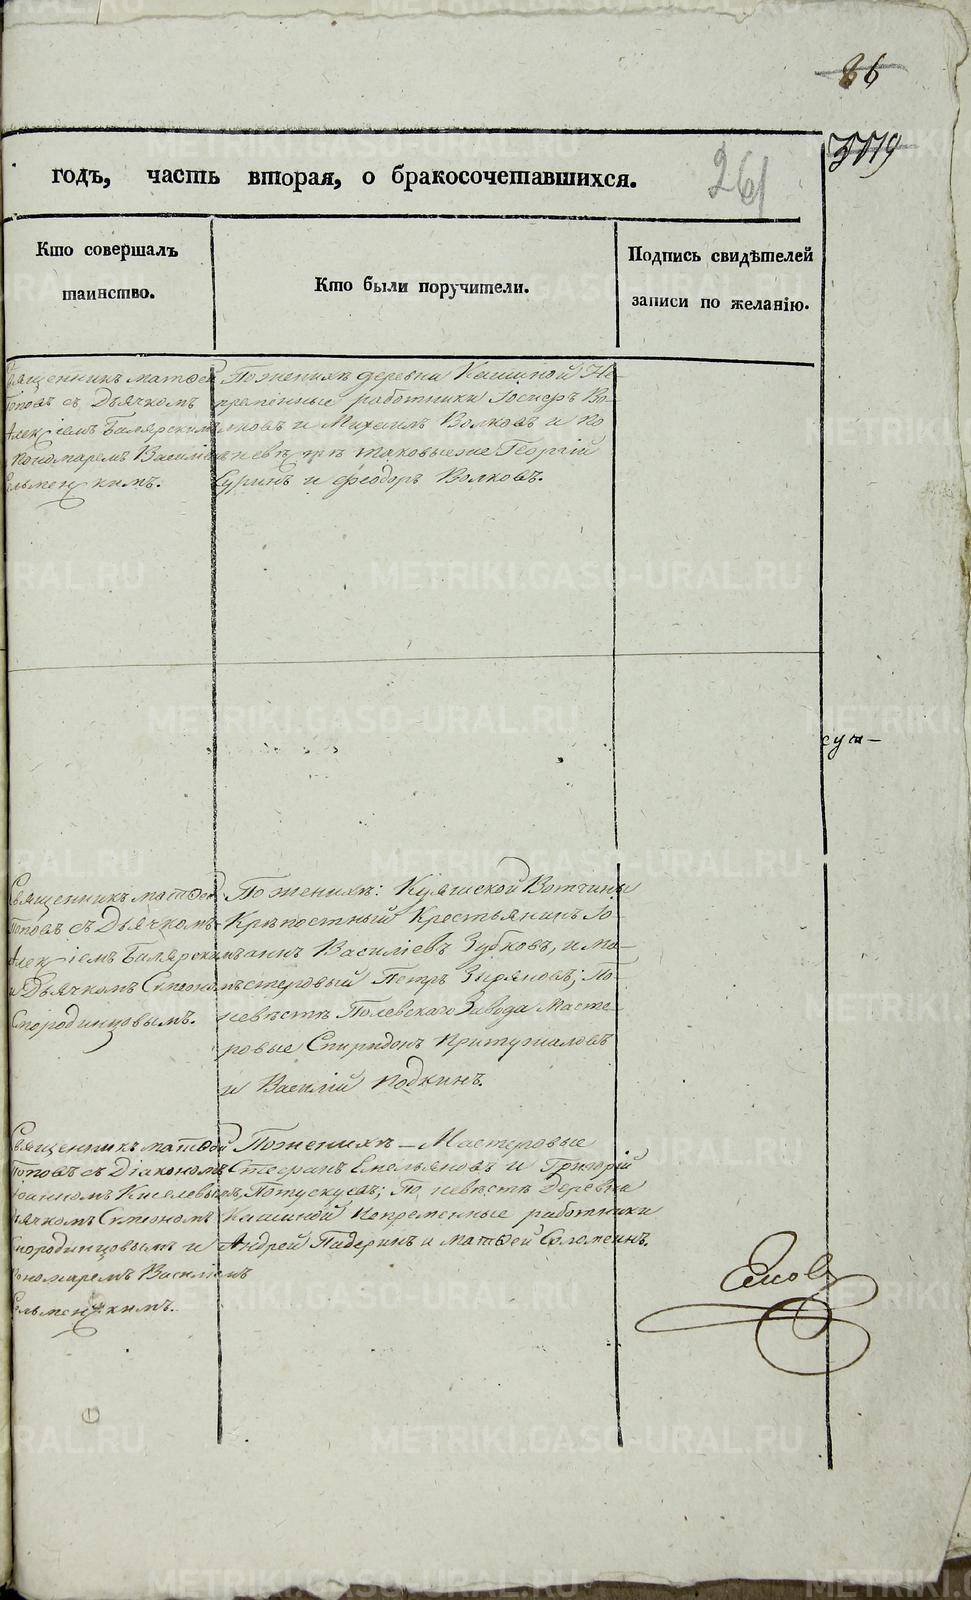 86
годъ, часть вторая, о бракосочетавшихся.
261
Кто совершалъ
таинство.
Кто были поручители.
Подпись свидѣтелей
записи по желанію.
Священникъ Матѳей
Поповъ съ Дьячкомъ
Алексіемъ Балярскимъ
Пономаремъ Василіемъ
По женихѣ деревни Кашиной Не-
премѣнные работники Іосифъ Во-
лковъ и Михаилъ Волковъ и по
невѣстѣ таковыеже Георгій
Суринъ и Феодоръ Волковъ.
сут-
Священникъ Матѳей
Поповъ съ Дьячкомъ
Алексіемъ Балярскимъ
и Дьячкомъ Симеономъ
Смородинцовымъ.
По женихѣ: Куяшской Вотчины
Крѣпостный Крестьянинъ Іо-
аннъ Василіевъ Зубковъ, и Ма-
стеровый Петръ Зыряновъ; По
невѣстѣ Полевскаго Завода Масте-
ровые Спиридонъ Притужаловъ
и Василій Кодкинъ.
Священникъ Матѳей
Поповъ съ Діакономъ
Іоанномъ Киселевымъ,
Дьячкомъ Симеономъ
Смородинцовымъ и
Пономаремъ Василіемъ
По женихѣ - Мастеровые
Стефанъ Емельяновъ и Григорій
Потускуевъ; По невѣстѣ деревни
Кашиной Непременные работники
Андрей Падеринъ и Матѳей Соломеинъ.
METRIKI.GASO-URAL.RU